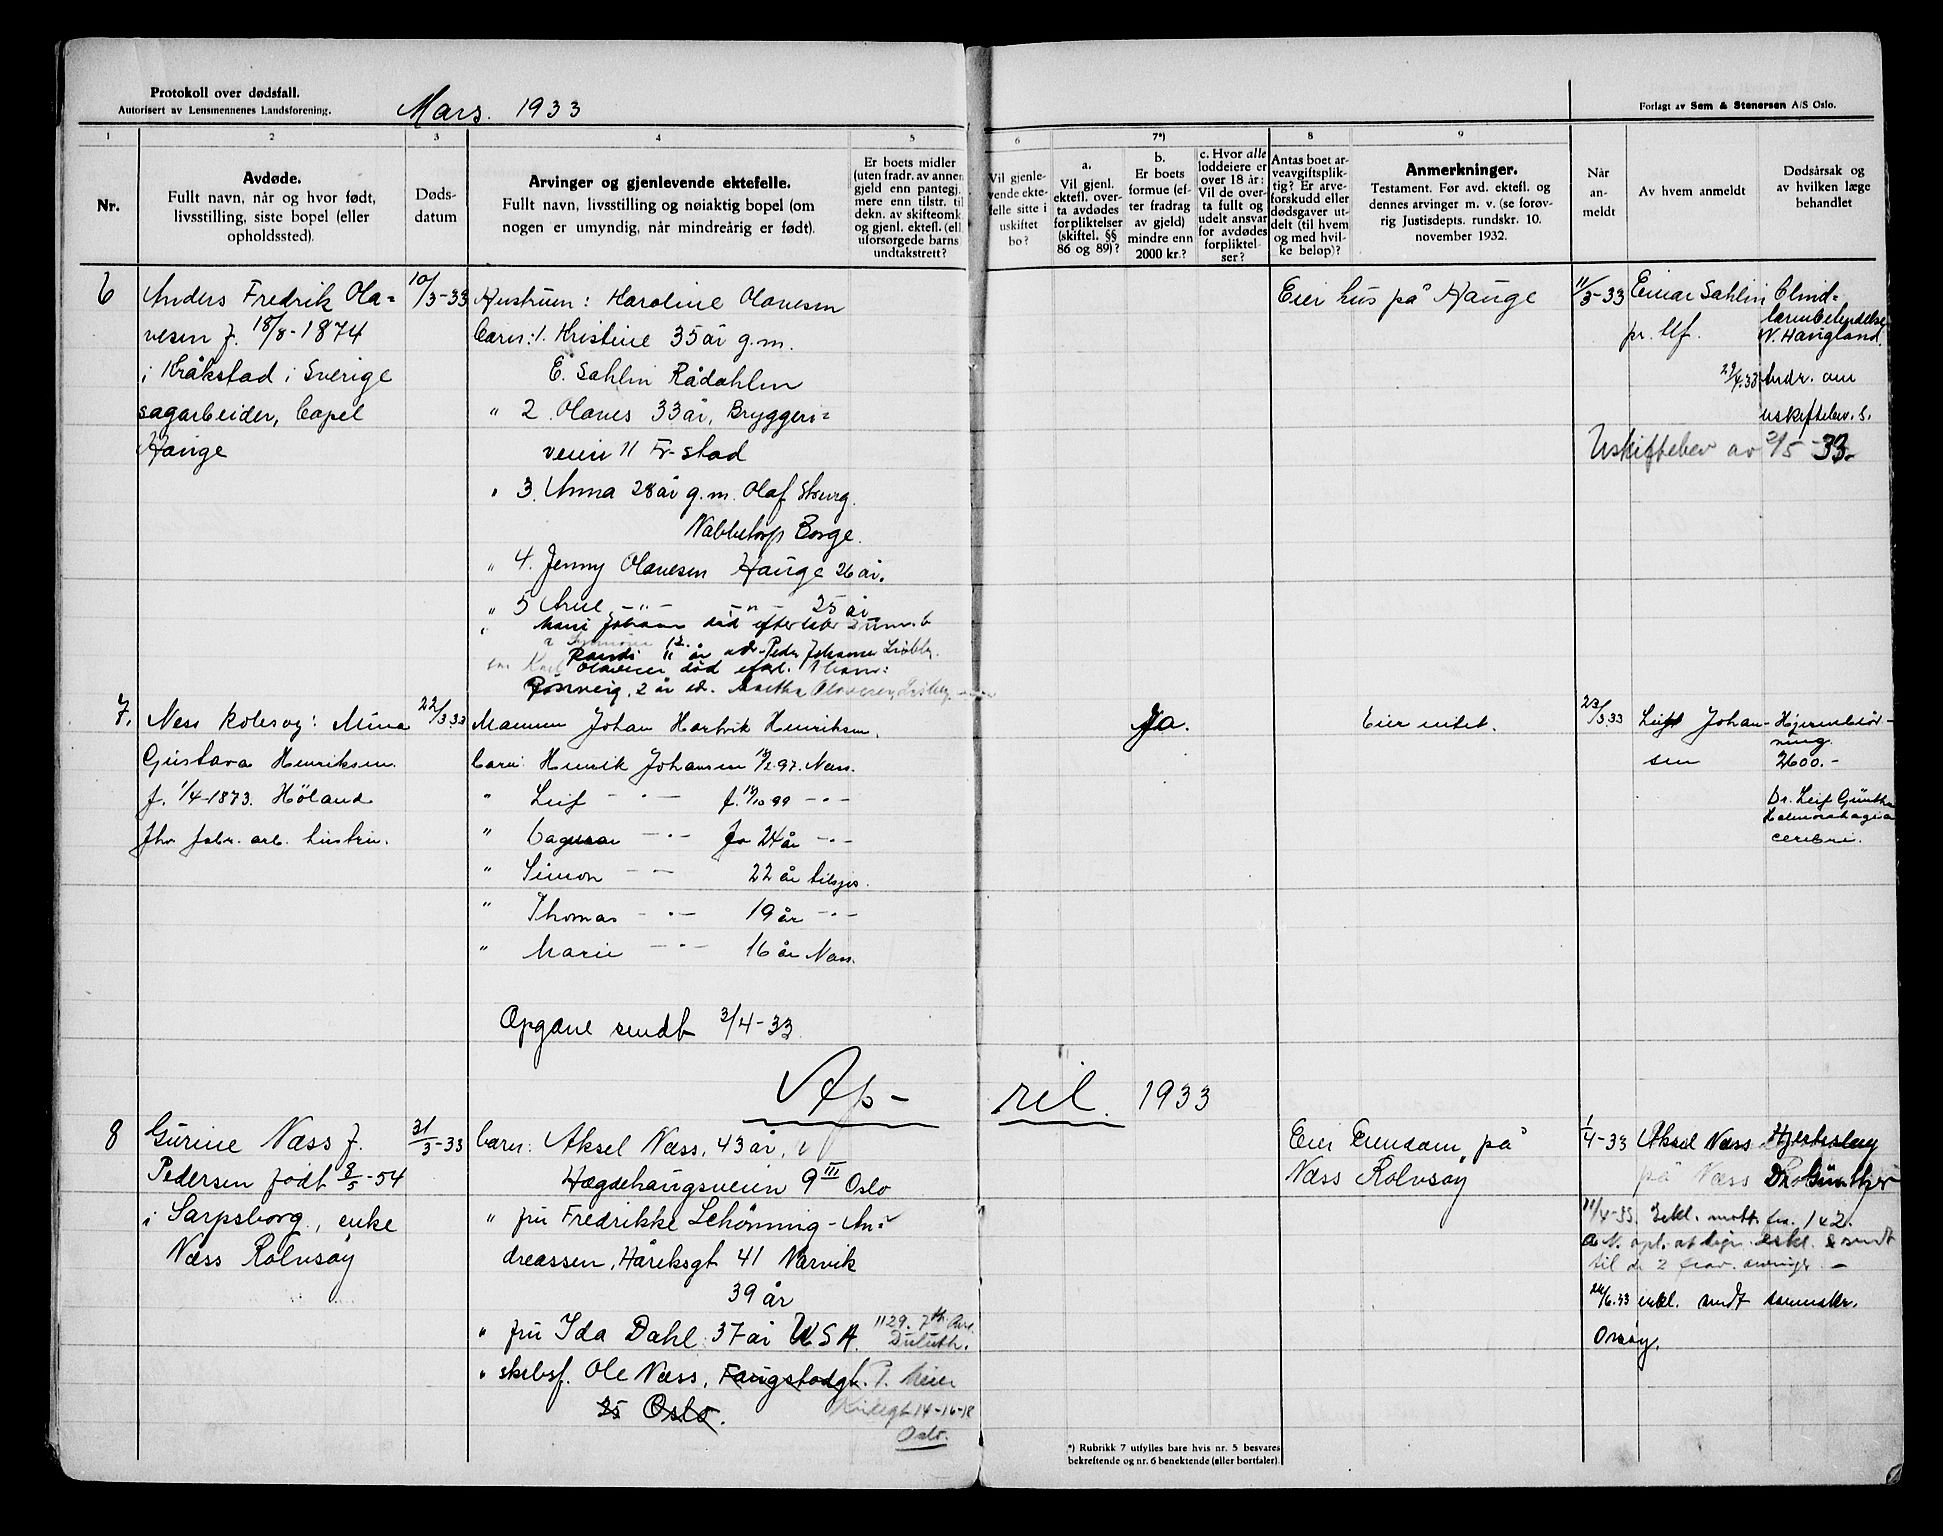 Protokoll over dødsfall.
Autorisert av Lensmennenes Landsforening.
Mars. 1933
Forlagt av Sem & Stenersen A/S Oslo.
1
2
3
4
5
6
7*)
8
9
Nr.
Avdøde.
Fullt navn, når og hvor født,
livsstilling, siste bopel (eller
opholdssted).
Døds-
datum
Arvinger og gjenlevende ektefelle.
Fullt navn, livsstilling og nøiaktig bopel (om
nogen er umyndig, når mindreårig er født).
Er boets midler
(uten fradr. av annen
gjeld enn pantegj.
mere enn tilstr. til
dekn. av skifteomk.
og gjenl. ektef. (ell.
uforsørgede barns
undtakstrett?
Vil gjenle-
vende ekte-
felle sitte i
uskiftet
bo?
a.
Vil gjenl.
ektefl. over-
ta avdødes
forpliktelser
(skiftel. §§
86 og 89)?
b.
Er boets
formue (ef-
ter fradrag
av gjeld)
mindre enn
2000 kr.?
c. Hvor alle
loddeiere er
over 18 år:
Vil de over-
ta fullt og
udelt ansvar
for avdødes
forpliktel-
ser?
Antas boet ar-
veavgiftsplik-
tig? Er arve-
forskudd eller
dødsgaver ut-
delt (til hvem
og med hvil-
ke beløp)?
Anmerkninger.
Testament. Før avd. ektefl. og
dennes arvinger m. v. (se forøv-
rig Justisdepts. rundskr. 10.
november 1932.
Når
an-
meldt
Av hvem anmeldt
Dødsårsak og
av hvilken læge
behandlet
6
Anders Fredrik Ola-
vesen f. 18/8-1874
i Kråkstad i Sverige
sagarbeider, bopel
Hauge
10/3-33
Hustruen: Karoline Olavesen
barn: 1. Kristine 35 år g.m.
E. Sahlin Rådahlen
" 2. Olaves 33 år, Bryggeri-
veien 11 Fr-stad
" 3. Anna 28 år g.m. Olaf
Nabbetorp Borge.
" 4. Jenny Olavesen Hauge 26 år.
" 5 -"- -"- 25 år
" Marie Johansen død efterlater
Randi 11 år adr. Peder Johansen
Olavesen død efterl. 1 barn:
2 år ad. Olavesen
Eier hus på Hauge
11/3-33
Einar Sahlin
pr. tlf.
Blind-
tarmbetendelse
N. Haugland.
29/4.33 Andr. om
uskiftebev. s.
Uskiftebev av 2/5-33.
7.
Ness Rolvsøy: Mina
Gustava Henriksen.
f. 1/4-1873. Høland
fhv. fabr. arb. hustru.
22/3.33
Mannen Johan Hartvik Henriksen.
barn: Henrik Johansen 19/2.97. Næss.
" Leif - " - f. 19/10 99 - " -
" Ragnar - " - 24 år - " -
" Simon - " - 22 år tilsjøs.
" Thomas - " - 19 år - " -
" Marie - " - 16 år Næss.
Opgave sendt 3/4-33
Ja.
Eier intet.
23/3.33
Leif Johan-
sen
Hjerneblød-
ning.
2600.-
Dr. Leif Günther
Hæmorrhagia
cerebri.
Ap-
ril. 1933
8
Gurine Næss f.
Pedersen født 8/5-54
i Sarpsborg, enke
Næss Rolvsøy
31/3-33
barn: Aksel Næss, 43 år,
Hægdehaugsveien 9 III Oslo
" fru Fredrikke Schønning-An-
dreassen, Håreksgt 41 Narvik
39 år
" fru Ida Dahl 37 år USA.
1129. 7th Ave.
Duluth.
" skibsf. Ole Næss, Faugstadgt.
25 Oslo.
14-16-18
Oslo.
Eier Eiendom på
Næss Rolvsøy
1/4-33
Aksel Næss
på Næss
Hjerteslag
Dr. Günther
11/4-33. Erkl. mott. fra 1 & 2.
til de 2 frav. arvinger. -
24/6.33 erkl. sendt sorenskr.
Onsøy.
*) Rubrikk 7 utfylles bare hvis nr. 5 besvares
bekreftende og nr. 6 benektende (eller bortfaler).